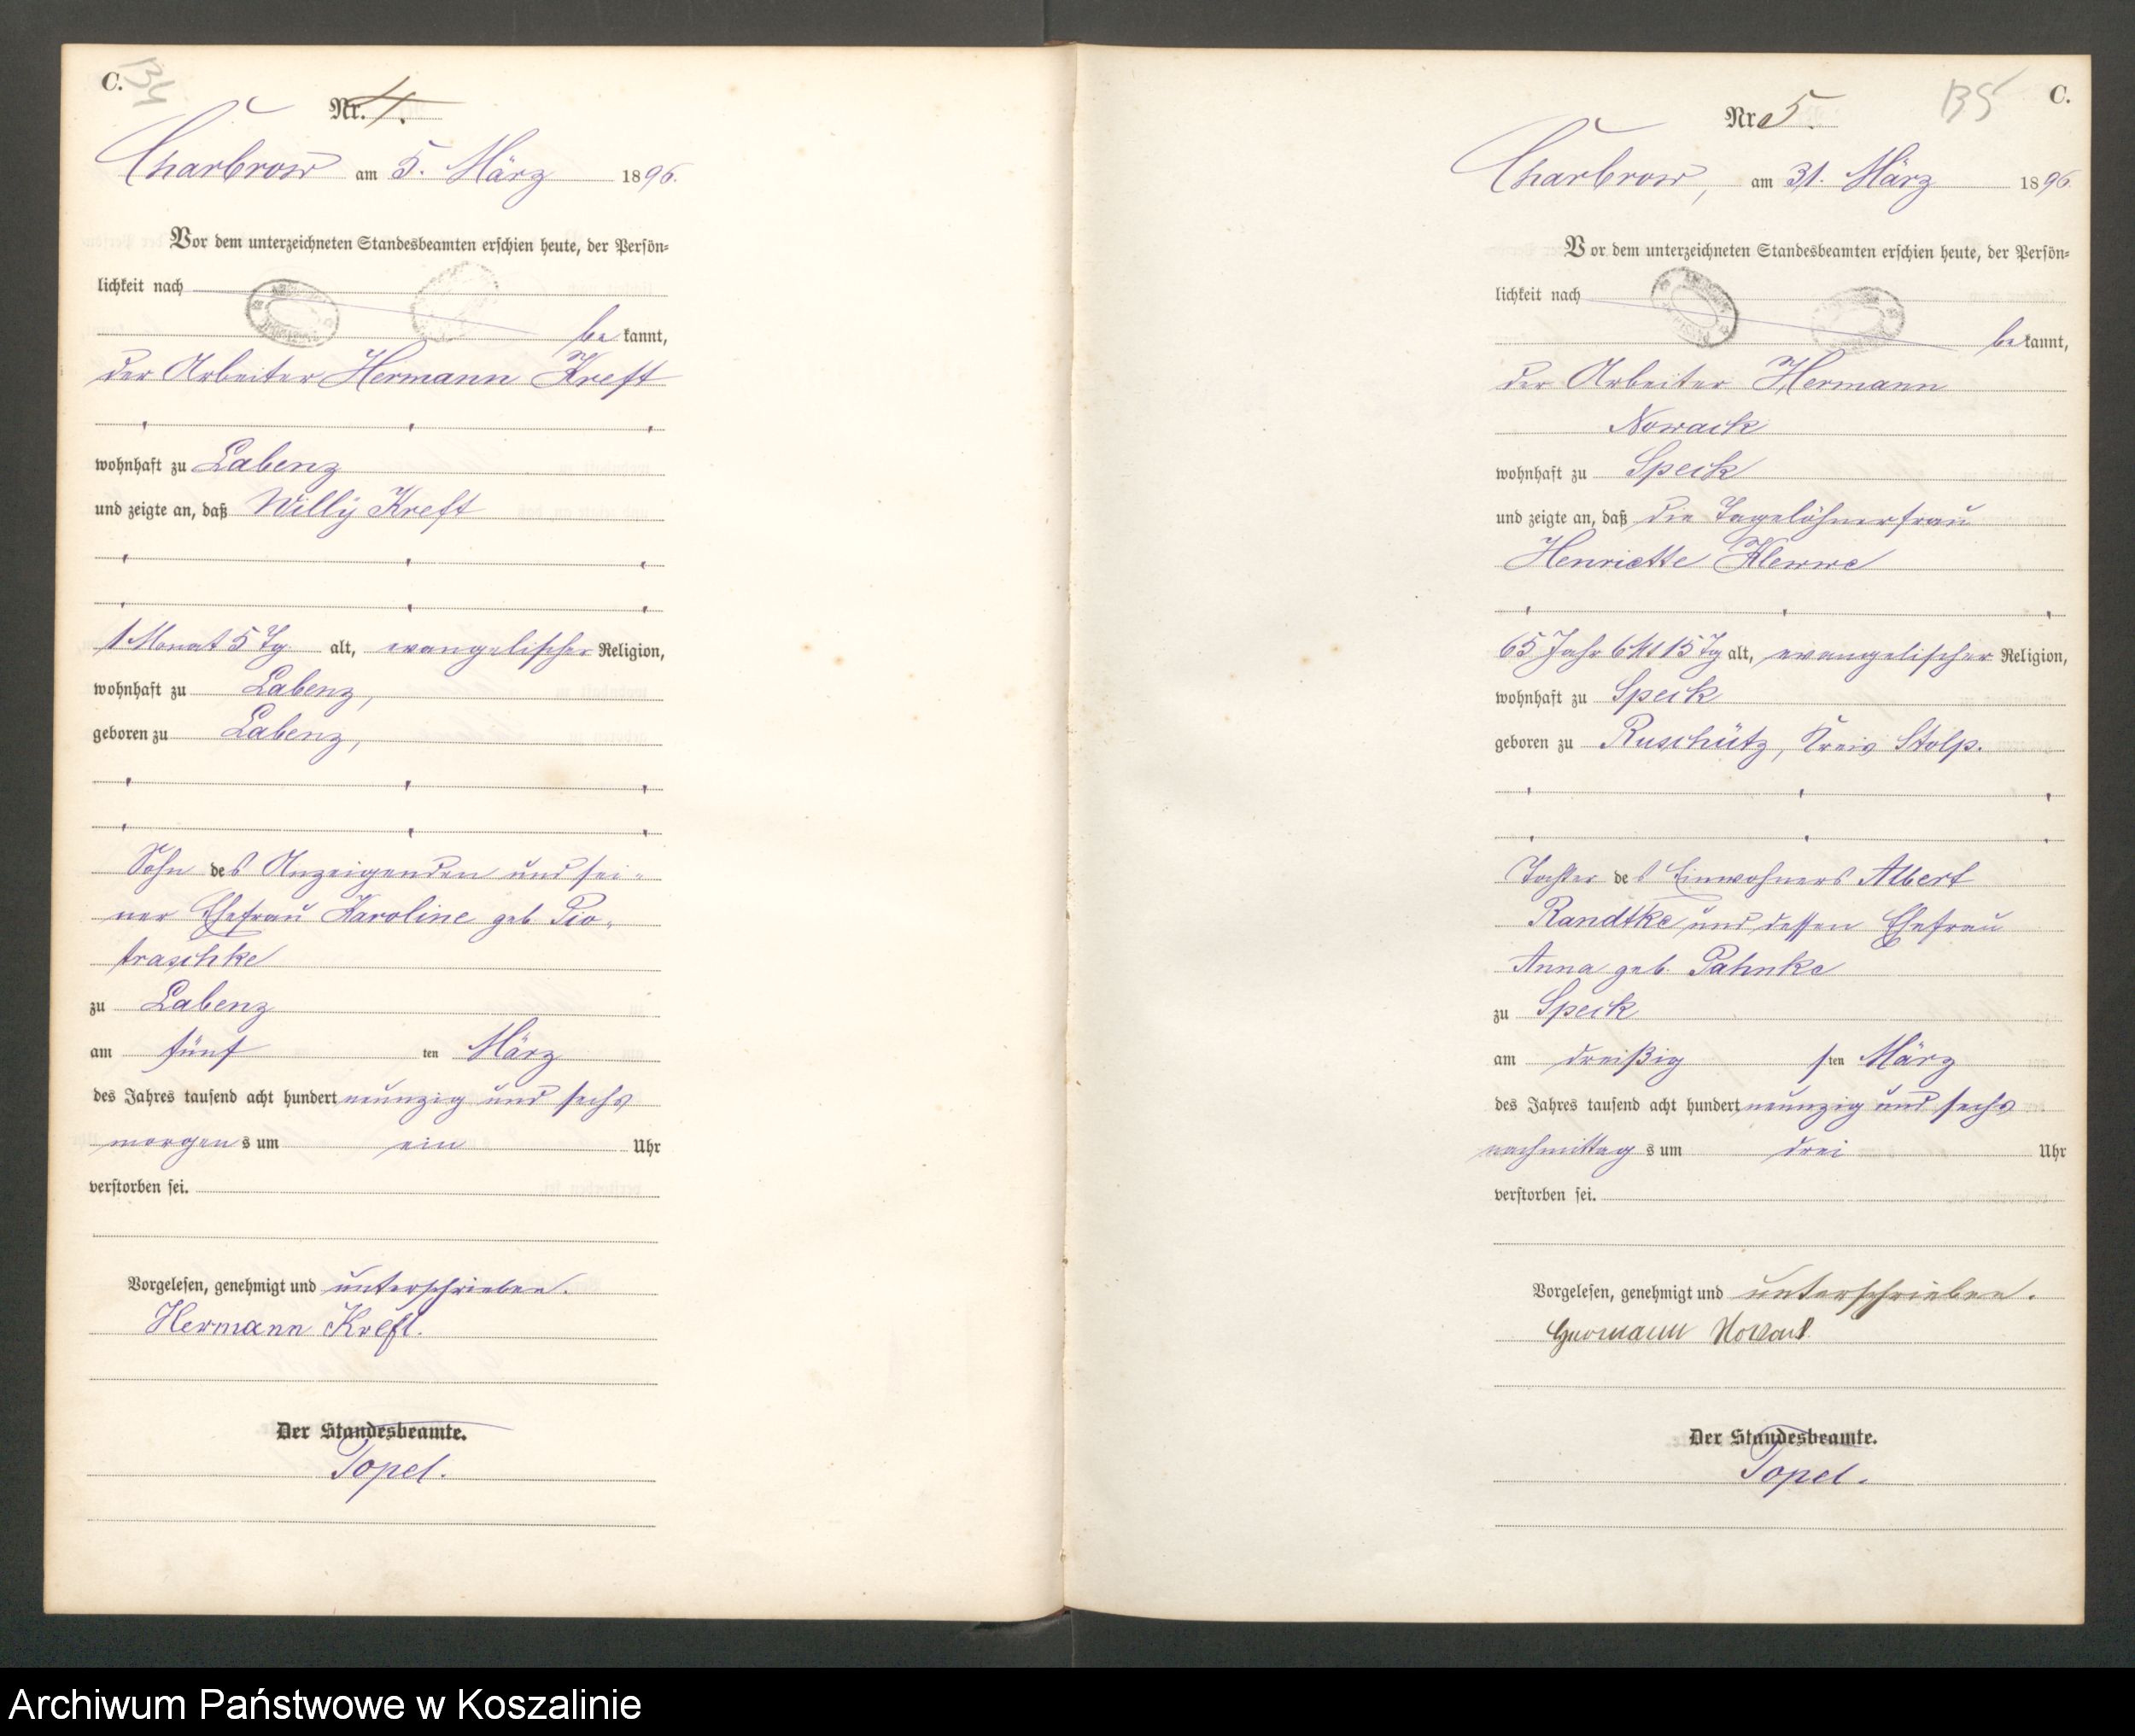 C. 134
Nr. 4.
Charbrow am 5. März 1896.
Vor dem unterzeichneten Standesbeamten erschien heute, der Persön-
lichkeit nach
bekannt,
der Arbeiter Hermann Kreft
wohnhaft zu Labenz
und zeigte an, daß Willy Kreft
1 Monat 5 Tg. alt, evangelischer Religion,
wohnhaft zu Labenz,
geboren zu Labenz,
Sohn des Anzeigenden und sei-
ner Ehefrau Karoline geb. Pio-
traschke
zu Labenz
am fünf ten März
des Jahres tausend acht hundert neunzig und sechs
morgens um ein Uhr
verstorben sei.
Vorgelesen, genehmigt und unterschrieben.
Hermann Kreft.
Der Standesbeamte.
Topel.
135 C.
Nr. 5.
Charbrow, am 31. März 1896.
Vor dem unterzeichneten Standesbeamten erschien heute, der Persön-
lichkeit nach
bekannt,
der Arbeiter Hermann
Nowack
wohnhaft zu Speck
und zeigte an, daß die Tagelöhnerfrau
Henriette Klewwe
65 Jahr 6 Mt 15 Tg alt, evangelischer Religion,
wohnhaft zu Speck
geboren zu Ruschütz, Kreis Stolp.
Tochter des Einwohners Albert
Randtke und dessen Ehefrau
Anna geb. Pahnke
zu Speck
am dreißig sten März
des Jahres tausend acht hundert neunzig und sechs
nachmittags um drei Uhr
verstorben sei.
Vorgelesen, genehmigt und unterschrieben.
Hermann Nowack
Der Standesbeamte.
Topel.
Archiwum Państwowe w Koszalinie